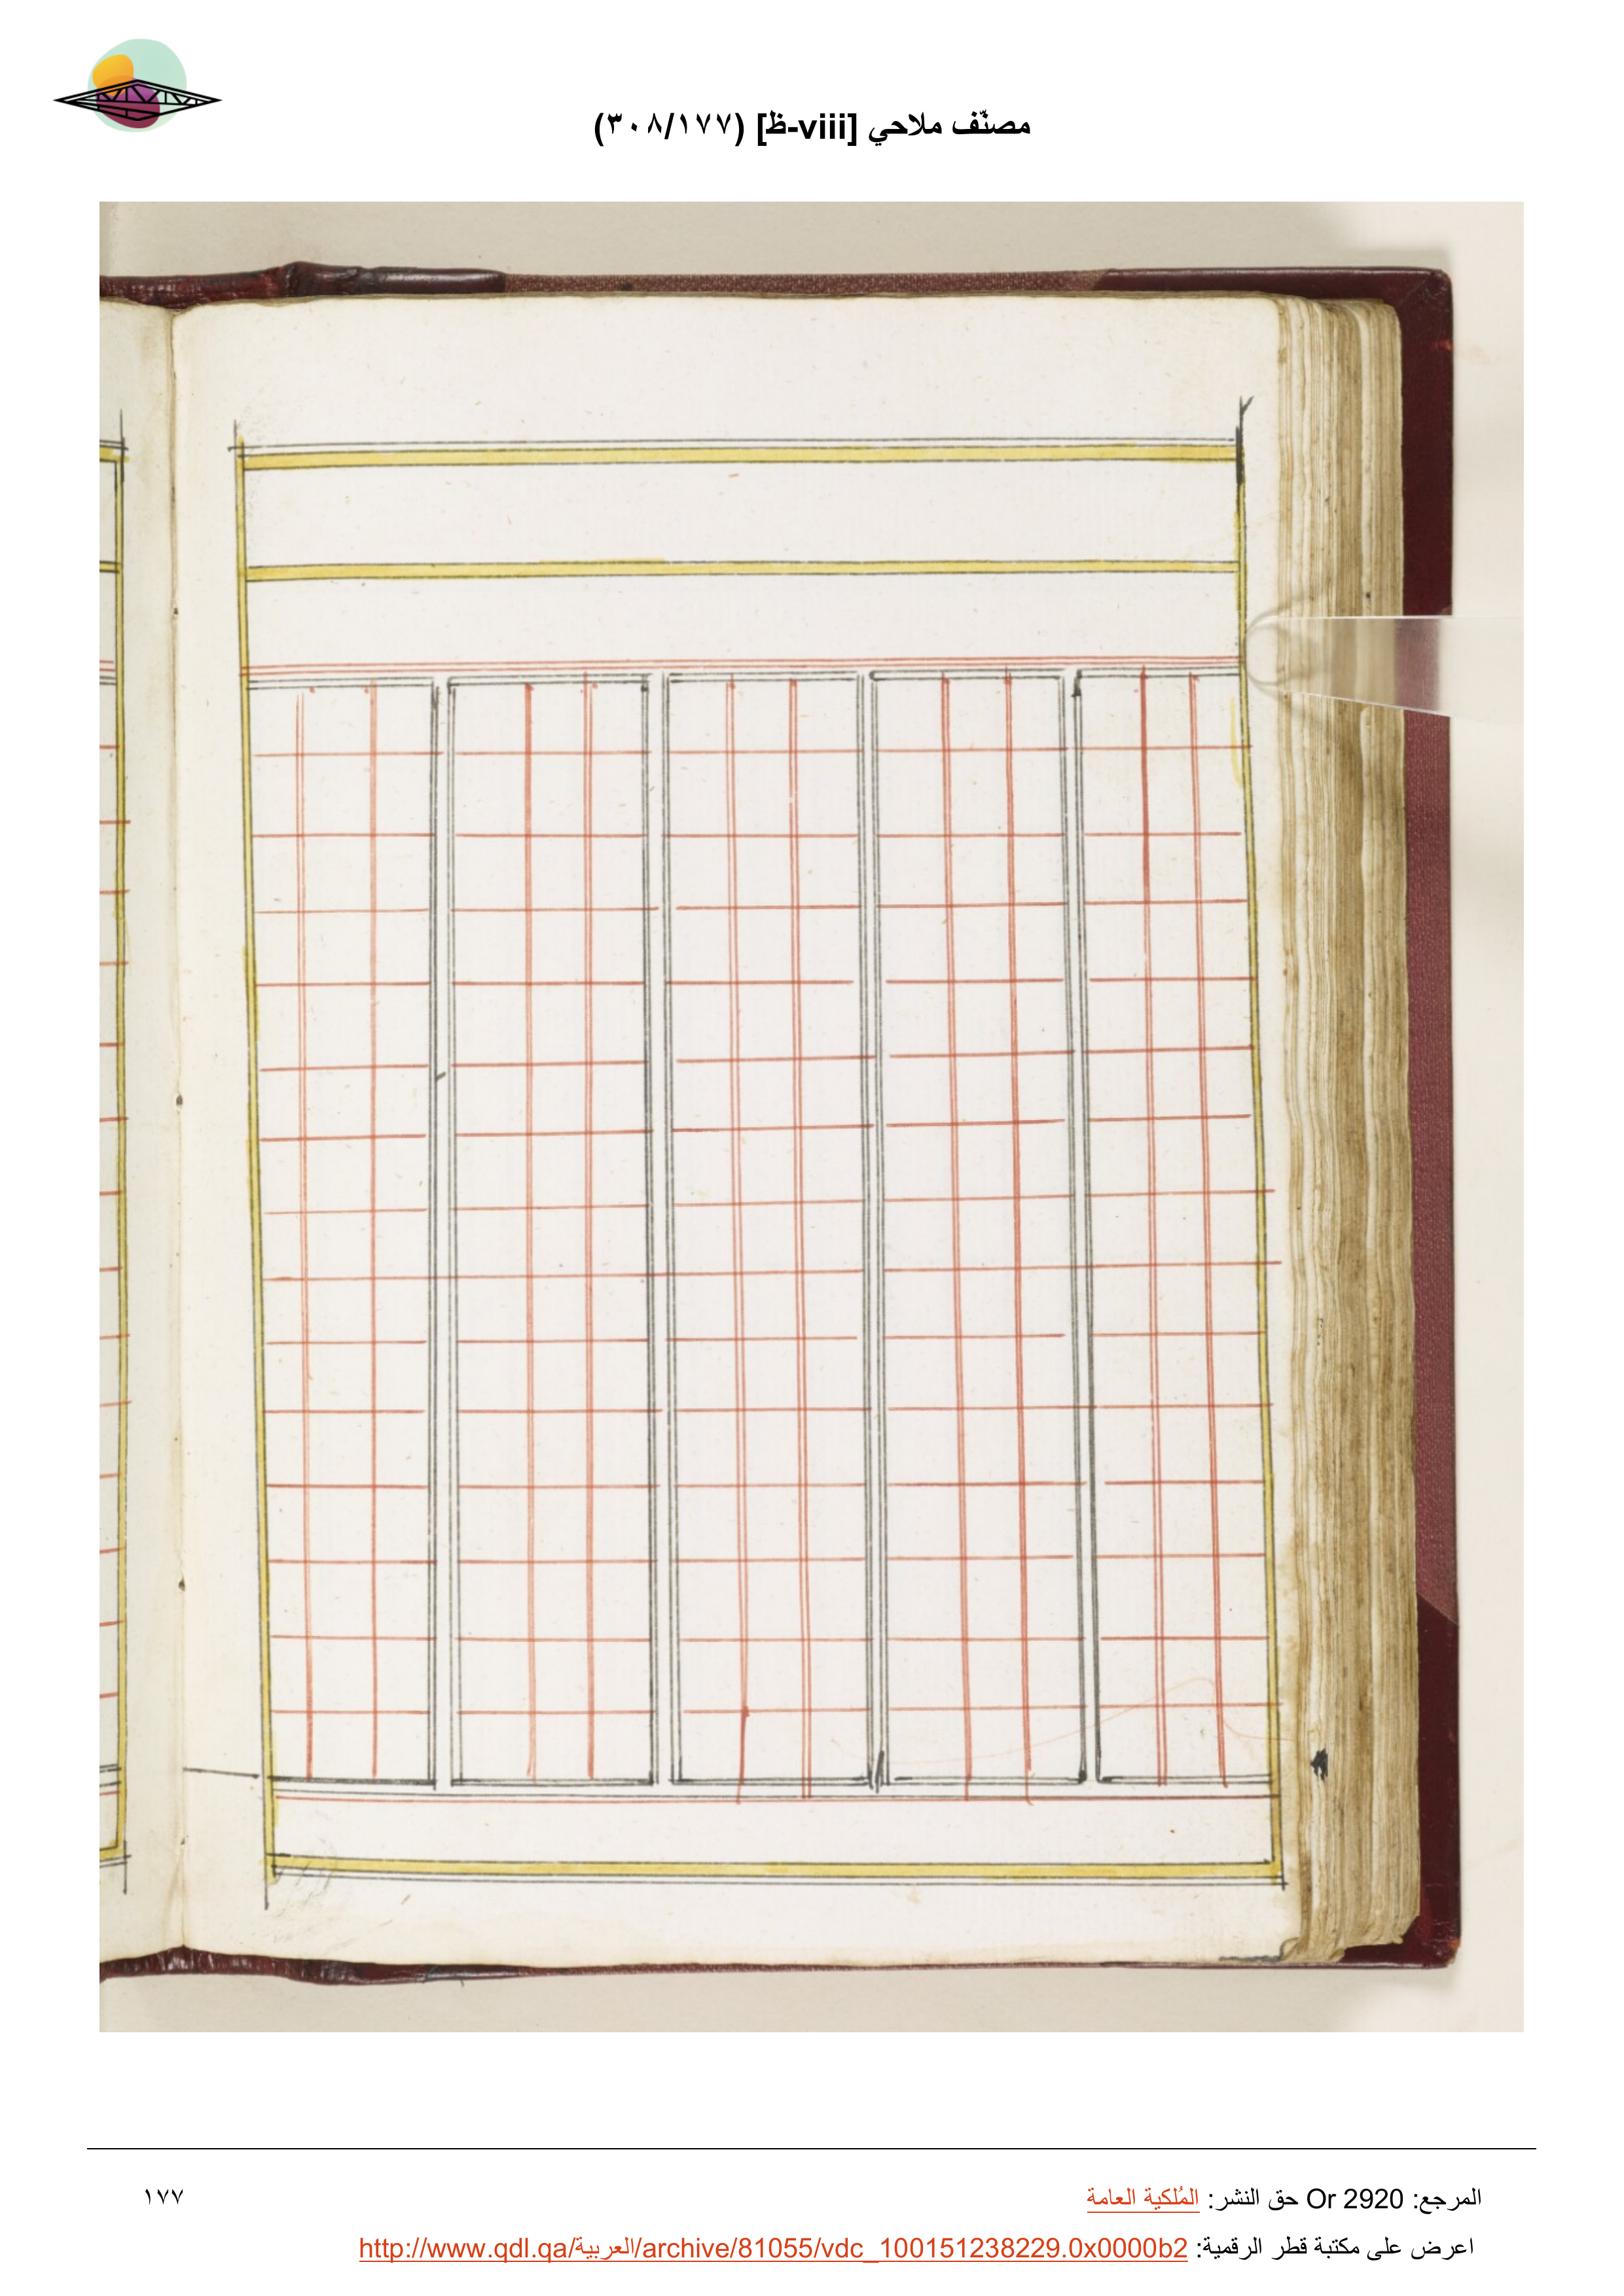 مصنّف ملاحي [viii-ظ] (٣٠٨/١٧٧)
المرجع: Or 2920 حق النشر: المُلكية العامة
١٧٧
اعرض على مكتبة قطر الرقمية: http://www.qdl.qa/العربية/archive/81055/vdc_100151238229.0x0000b2